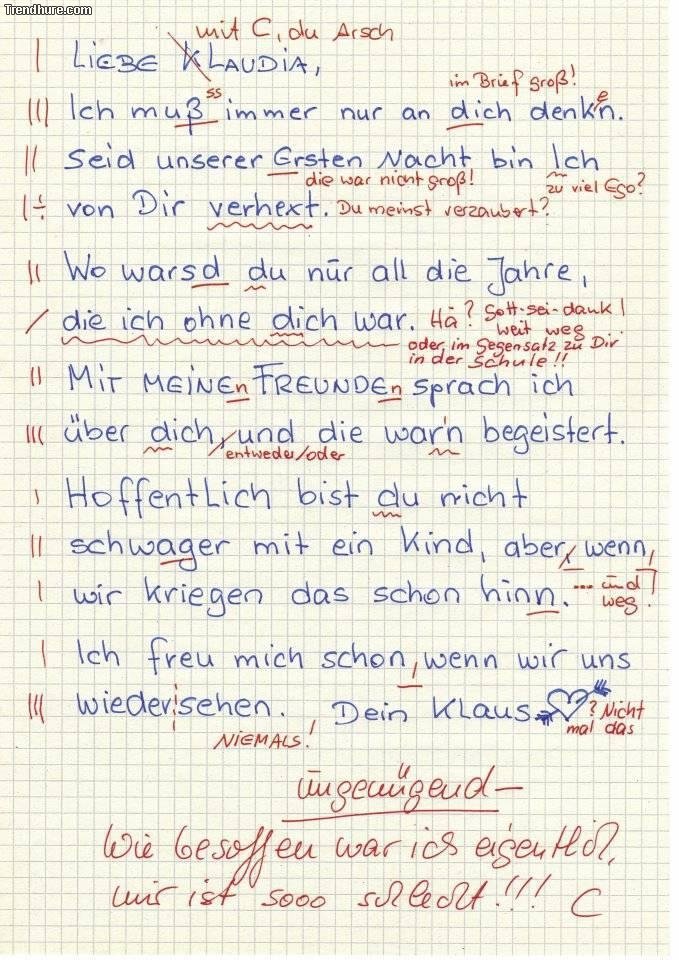 Trendhure.com
mit C, du Arsch
LIEBE KLAUDIA,
im Brief groß!
ss e
Ich muß immer nur an dich denk'n.
Seid unserer Ersten Nacht bin Ich
die war nicht groß! zu viel Ego?
von Dir verhext. Du meinst verzaubert?
Wo warsd du nur all die Jahre,
die ich ohne dich war. Hä? Gott-sei-dank!
weit weg
oder, im Gegensatz zu Dir
in der Schule!!
MIT MEINEn FREUNDEn sprach ich
über dich, und die war'n begeistert.
entweder/oder
HoffentLich bist du nicht
schwager mit ein Kind, aber, wenn,
wir kriegen das schon hinn. ... und
weg!
Ich freu mich schon, wenn wir uns
wieder sehen. Dein KLaus ? Nicht
mal das
NIEMALS!
ungenügend –
Wie besoffen war ich eigentlich,
mir ist sooo schlecht!!! C